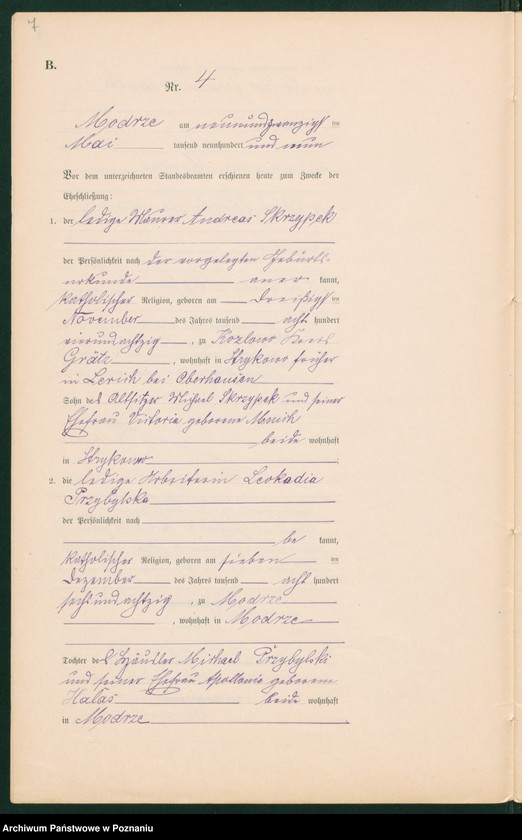 7
B.
Nr. 4
Modrze am neunundzwanzigsten
Mai tausend neunhundert und neun
Vor dem unterzeichneten Standesbeamten erschienen heute zum Zwecke der
Eheschließung:
1. der ledige Maurer Andreas Skrzypek
der Persönlichkeit nach der vorgelegten Geburts-
urkunde aner kannt,
katholischer Religion, geboren am dreißigsten
November des Jahres tausend acht hundert
vierundachtzig, zu Kozlowo Kreis
Grätz, wohnhaft in Strykowo früher
in Lerich bei Oberhausen
Sohn des Altsitzer Michael Skrzypek und seiner
Ehefrau Victoria geborene Mnich
beide wohnhaft
in Strykowo
2. die ledige Arbeiterin Leokadia
Przybylska
der Persönlichkeit nach
be kannt,
katholischer Religion, geboren am sieben ten
Dezember des Jahres tausend acht hundert
sechsundachtzig, zu Modrze
, wohnhaft in Modrze
Tochter des Häusler Michael Przybylski
und seiner Ehefrau Apollonia geborene
Halas beide wohnhaft
in Modrze
Archiwum Państwowe w Poznaniu